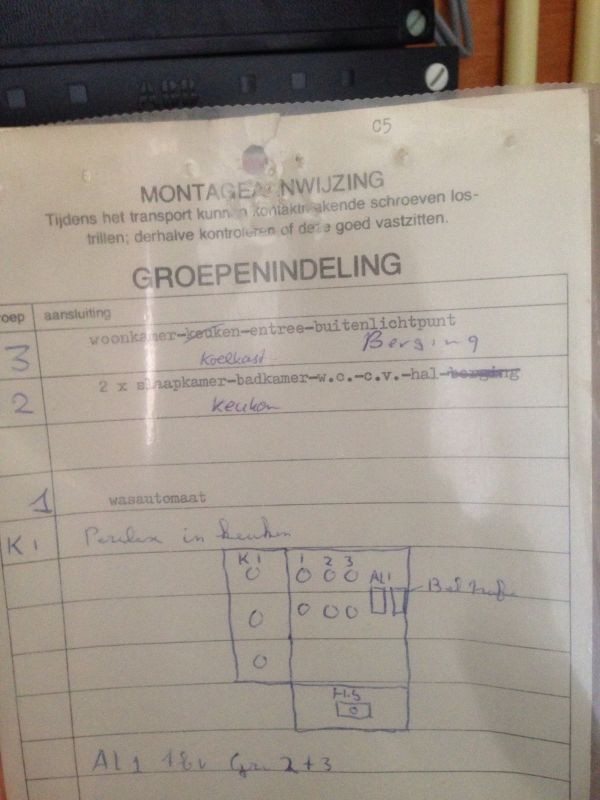 C5
MONTAGEAANWIJZING
Tijdens het transport kunnen kontaktmakende schroeven los-
trillen; derhalve kontroleren of deze goed vastzitten.
GROEPENINDELING
roep aansluiting
3 woonkamer-keuken-entree-buitenlichtpunt
koelkast Berging
2 2 x slaapkamer-badkamer-w.c.-c.v.-hal-berging
keuken
1 wasautomaat
K1 Perilex in keuken
K1 1 2 3 AL1
Beltrafo
H.S
AL1 voor Gr. 2+3